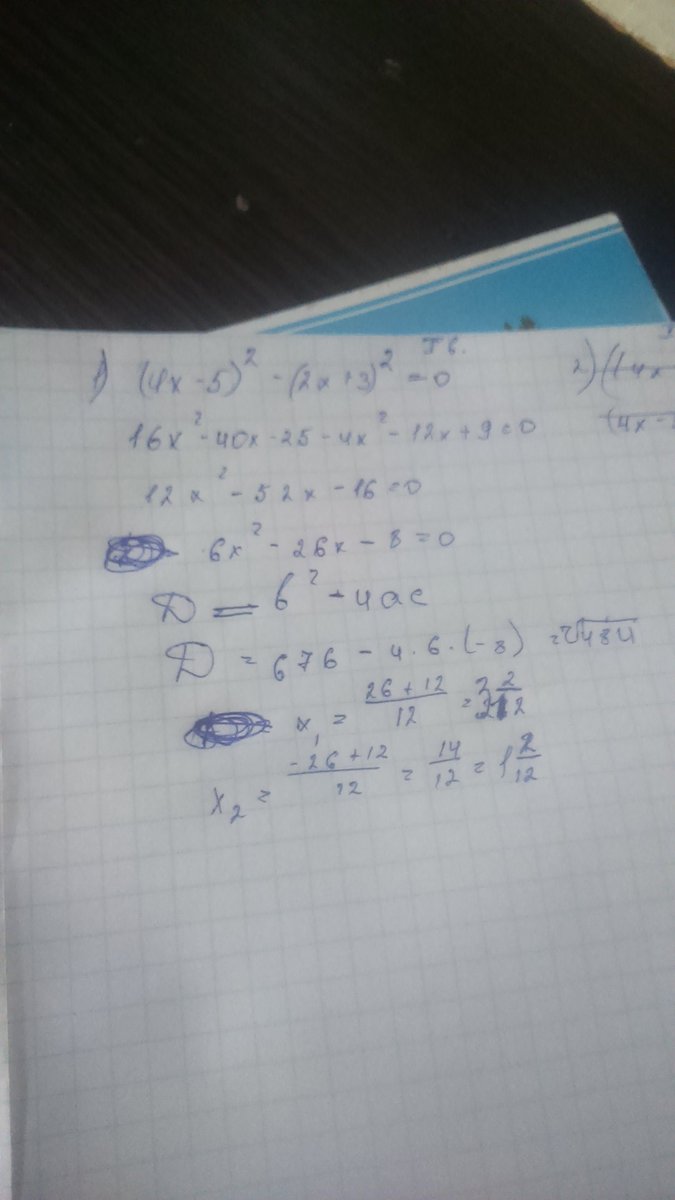 1) (4x - 5)² - (2x + 3)² = 0
2) (4x
16x² - 40x - 25 - 4x² - 12x + 9 = 0
(4x -
12x² - 52x - 16 = 0
6x² - 26x - 8 = 0
D = b² - 4ac
D = 676 - 4 · 6 · (-8) = √484
x₁ = (26 + 12)/12 = 3 2/12
x₂ = (-26 + 12)/12 = 14/12 = 1 2/12